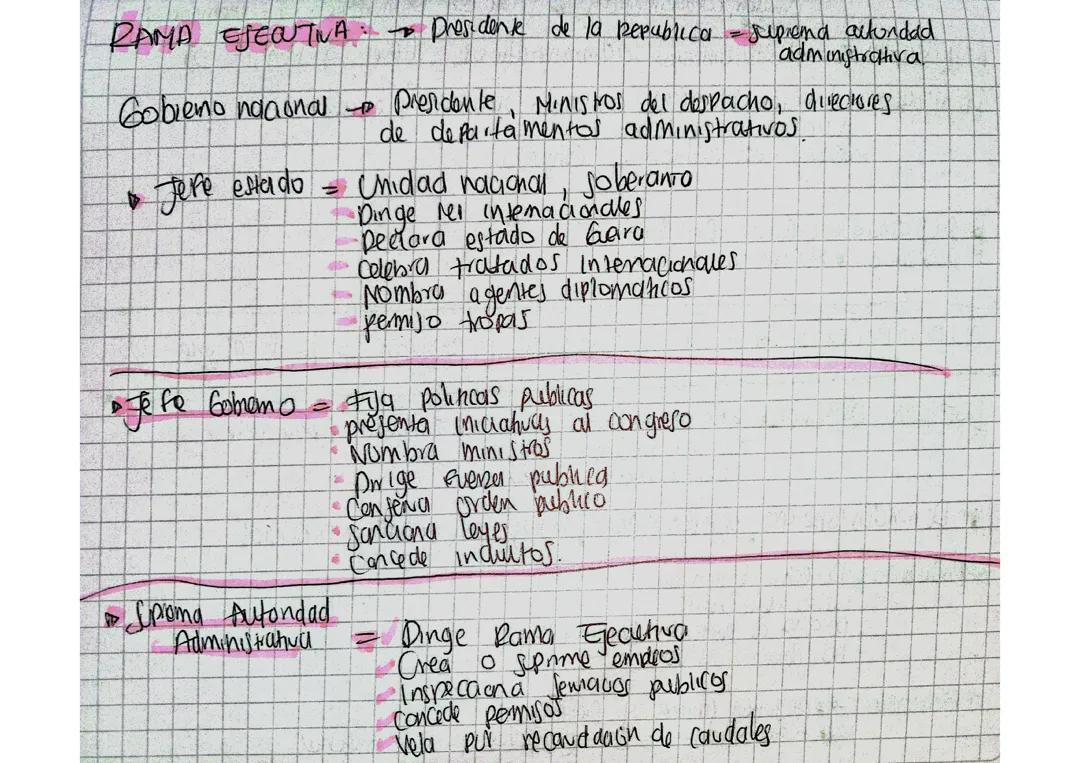 RAMA EJECUTIVA: → Presidente de la Republica = suprema autoridad
administrativa
Gobierno nacional → Presidente, Ministros del despacho, directores
de departamentos administrativos.
Jefe estado = Unidad nacional, soberanto
- Dirige rel internacionales
- Declara estado de Gerra
- Celebra tratados internacionales
- Nombra agentes diplomaticos
- permiso tropas
Jefe Gobierno = Fija politicas publicas
• presenta iniciativas al congreso
• Nombra ministros
• Dirige fuerza publica
• Conserva orden publico
• Sanciona leyes
• Concede indultos.
Suprema Autoridad
Administrativa = Dirige Rama Ejecutiva
Crea o suprime empleos
Inspecciona servicios publicos
Concede permisos
Vela por recaudacion de caudales